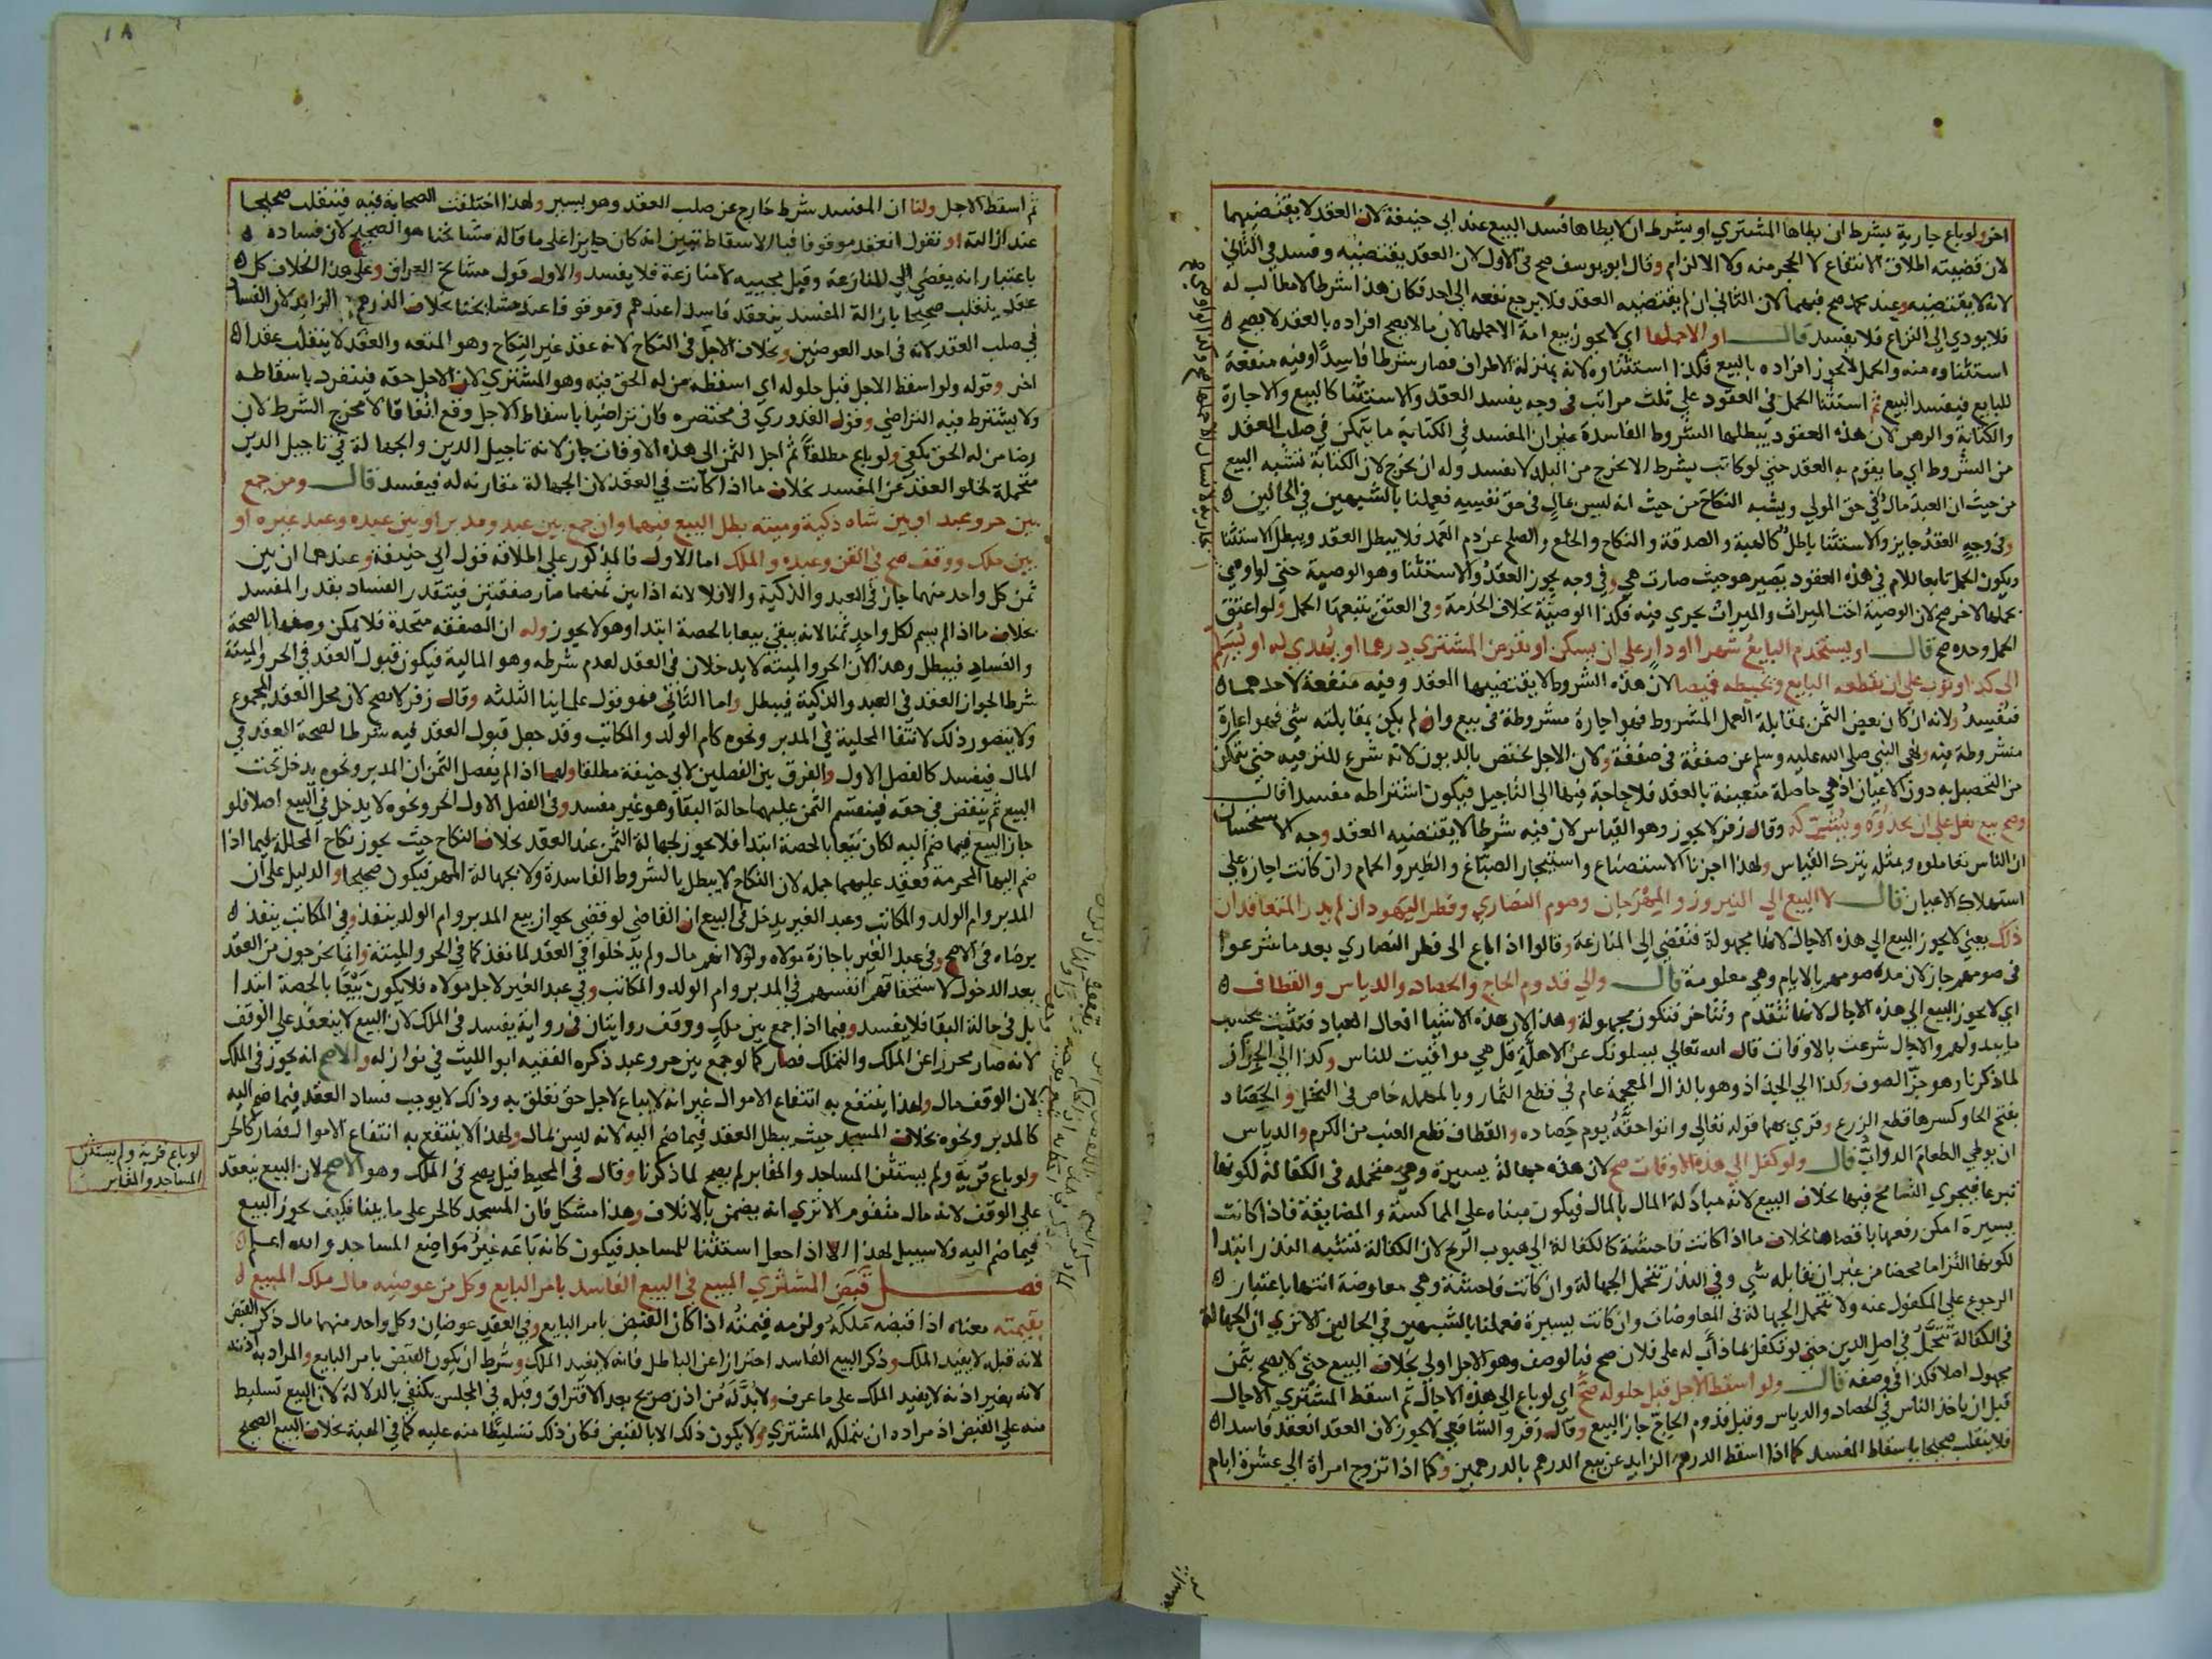 اخر ولو باع جارية بشرط ان يطاها المشتري او بشرط ان لا يطاها فسد البيع عند ابي حنيفة لان العقد لا يقتضيهما
لان قضيته اطلاق الانتفاع لا الحجر منه ولا الالزام وقال ابو يوسف صح في الاول لان العقد يقتضيه وفسد في الثاني
لانه لا يقتضيه وعند محمد صح فيهما لان الثاني ان لم يقتضيه العقد فلا يرجع نفعه الى احد فكان هذا شرطا لا مطالب له
فلا يودي الى النزاع فلا يفسد قال او الا حملها اي لا يجوز بيع امة الا حملها لان ما لا يصح افراده بالعقد لا يصح
استثناوه منه والحمل لا يجوز افراده بالبيع فكذا استثناوه لانه بمنزلة الاطراف فصار شرطا فاسدا وفيه منفعة
للبايع فيفسد البيع ثم استثنا الحمل في العقود على ثلث مراتب في وجه يفسد العقد والاستثنا كالبيع والاجارة
والكتابة والرهن لان هذه العقود يبطلها الشروط الفاسدة غير ان المفسد في الكتابة ما يتمكن في صلب العقد
من الشروط اي ما يقوم به العقد حتى لو كاتب بشرط الا يخرج من البلد لا يفسد وله ان يخرج لان الكتابة تشبه البيع
من حيث ان العبد مال في حق المولى ويشبه النكاح من حيث انه ليس بمال في حق نفسه فعملنا بالشبهين في الحالين
وفي وجه العقد جايز والاستثنا باطل كالهبة والصدقة والنكاح والخلع والصلح عن دم العمد فلا يبطل العقد ويبطل الاستثنا
ويكون الحمل تابعا للام في هذه العقود يصير هو حيث صارت هي وفي وجه يجوز العقد والاستثنا وهو الوصية حتى لو اوصى
بحملها لاخر صح لان الوصية اخت الميراث والميراث يجري فيه فكذا الوصية بخلاف الخدمة وفي العتق يتبعها الحمل ولو اعتق
الحمل وحده صح قال او يستخدم البايع شهرا او دار على ان يسكن او يقرض المشتري درهما او يهدي له او يسلم
الى كذا او ثوب على ان يقطعه البايع ويخيطه قميصا لان هذه الشروط لا يقتضيها العقد وفيه منفعة لاحدهما
فيفسد ولانه ان كان بعض الثمن بمقابلة العمل المشروط فهو اجارة مشروطة في بيع وان لم يكن بمقابلته شي فهو اعارة
مشروطة فيه ونهى النبي صلى الله عليه وسلم عن صفقة في صفقة ولان الاجل يختص بالديون لانه شرع للترفيه حتى يتمكن
من التحصيل به دون الاعيان اذ هي حاصلة متعينة بالعقد فلا حاجة فيها الى التاجيل فيكون اشتراطه مفسدا قال
وصح بيع نعل على ان يحذوه ويشركه وقال زفر لا يجوز وهو القياس لان فيه شرطا لا يقتضيه العقد وجه الاستحسان
ان الناس تعاملوه وبمثله يترك القياس ولهذا اجزنا الاستصناع واستيجار الصباغ والظير والحمام وان كانت اجارة على
استهلاك الاعيان قال لا البيع الى النيروز والمهرجان وصوم النصاري وفطر اليهود ان لم يدر المتعاقدان
ذلك يعني لا يجوز البيع الى هذه الاجال لانها مجهولة فتفضي الى المنازعة وقالوا اذا باع الى فطر النصاري بعد ما شرعوا
في صومهم جاز لان مدة صومهم بالايام وهي معلومة قال والى قدوم الحاج والحصاد والدياس والقطاف
اي لا يجوز البيع الى هذه الاجال لانها تتقدم وتتاخر فتكون مجهولة وهذا لان هذه الاشيا افعال العباد فتثبت بحسب
ما يبدو لهم والاجال شرعت بالاوقات قال الله تعالى يسلونك عن الاهلة قل هي مواقيت للناس وكذا الى الجزاز
لما ذكرنا وهو جز الصوف وكذا الى الجذاذ وهو بالذال المعجمة عام في قطع الثمار وبالمهملة خاص في النخل والحصاد
بفتح الحا وكسرها قطع الزرع وقري بهما قوله تعالى واتوا حقه يوم حصاده والقطاف قطع العنب من الكرم والدياس
ان يوطي الطعام الدواب قال ولو كفل الى هذه الاوقات صح لان هذه جهالة يسيرة وهي متحملة في الكفالة لكونها
تبرعا فيجري التسامح فيها بخلاف البيع لانه مبادلة المال بالمال فيكون مبناه على المماكسة والمضايقة فاذا كانت
يسيرة امكن رفعها باقصاها بخلاف ما اذا كانت فاحشة كالكفالة الى هبوب الريح لان الكفالة تشبه النذر ابتدا
لكونها التزاما محضا من غير ان يقابله شي وفي النذر تتحمل الجهالة وان كانت فاحشة وهي معاوضة انتها باعتبار
الرجوع على المكفول عنه ولا تتحمل الجهالة في المعاوضات وان كانت يسيرة فعملنا بالشبهين في الحالين الا ترى ان الجهالة
في الكفالة تتحمل في اصل الدين حتى لو تكفل بما ذاب له على فلان صح فبالوصف وهو الاجل اولى بخلاف البيع حتى لا يصح بثمن
مجهول اصلا فكذا في وصفه قال ولو اسقط الاجل قبل حلوله صح اي لو باع الى هذه الاجال ثم اسقط المشتري الاجال
قبل ان ياخذ الناس في الحصاد والدياس وقبل قدوم الحاج جاز البيع وقال زفر والشافعي لا يجوز لان العقد انعقد فاسدا
فلا ينقلب صحيحا باسقاط المفسد كما اذا اسقط الدرهم الزايد عن بيع الدرهم بالدرهمين وكما اذا تزوج امراة الى عشرة ايام
ثم اسقط الاجل ولنا ان المفسد شرط خارج عن صلب العقد وهو يسير ولهذا اختلفت الصحابة فيه فينقلب صحيحا
عند ازالته او نقول انعقد موقوفا فبالاسقاط تبين انه كان جايزا على ما قاله مشايخنا هو الصحيح لان فساده
باعتبار انه يفضي الى المنازعة وقبل مجييه لا منازعة فلا يفسد والاول قول مشايخ العراق وعلى هذا الخلاف كل
عقد ينقلب صحيحا بازالة المفسد ينعقد فاسدا عندهم وموقوفا عند مشايخنا بخلاف الدرهم الزايد لان الفساد
في صلب العقد لانه في احد العوضين وبخلاف الاجل في النكاح لانه عقد غير النكاح وهو المتعة والعقد لا ينقلب عقدا
اخر وقوله ولو اسقط الاجل قبل حلوله اي اسقطه من له الحق فيه وهو المشتري لان الاجل حقه فينفرد باسقاطه
ولا يشترط فيه التراضي وقول القدوري في مختصره فان تراضيا باسقاط الاجل وقع اتفاقا لا مخرج الشرط لان
رضا من له الحق يكفي ولو باع مطلقا ثم اجل الثمن الى هذه الاوقات جاز لانه تاجيل الدين والجهالة في تاجيل الدين
متحملة لخلو العقد عن المفسد بخلاف ما اذا كانت في العقد لان الجهالة مقارنة له فيفسد قال ومن جمع
بين حر وعبد او بين شاه ذكية وميتة بطل البيع فيهما وان جمع بين عبد ومدبر او بين عبده وعبد غيره او
بين ملك ووقف صح في القن وعبده والملك اما الاول فالمذكور على اطلاقه قول ابي حنيفة وعندهما ان بين
ثمن كل واحد منهما جاز في العبد والذكية والا فلا لانه اذا بين ثمنهما صارا صفقتين فيتقدر الفساد بقدر المفسد
بخلاف ما اذا لم يسم لكل واحد ثمنا لانه يبقى بيعا بالحصة ابتدا وهو لا يجوز وله ان الصفقة متحدة فلا يمكن وصفها بالصحة
والفساد فيبطل وهذا لان الحر والميتة لا يدخلان في العقد لعدم شرطه وهو المالية فيكون قبول العقد في الحر والميتة
شرطا لجواز العقد في العبد والذكية فيبطل واما الثاني فهو قول علماينا الثلثه وقال زفر لا يصح لان محل العقد المجموع
ولا يتصور ذلك لانتفا المحلية في المدبر ونحوه كام الولد والمكاتب وقد جعل قبول العقد فيه شرطا لصحة العقد في
المال فيفسد كالفصل الاول والفرق بين الفصلين لابي حنيفة مطلقا ولهما اذا لم يفصل الثمن ان المدبر ونحوه يدخل تحت
البيع ثم ينقض في حقه فينقسم الثمن عليهما حالة البقا وهو غير مفسد وفي الفصل الاول الحر ونحوه لا يدخل في البيع اصلا فلو
جاز البيع فيما ضم اليه لكان بيعا بالحصة ابتدا فلا يجوز لجهالة الثمن عند العقد بخلاف النكاح حيث يجوز نكاح المحللة فيما اذا
ضم اليها المحرمة وعقد عليهما جملة لان النكاح لا يبطل بالشروط الفاسدة ولا بجهالة المهر فيكون صحيحا والدليل على ان
المدبر وام الولد والمكاتب وعبد الغير يدخل في البيع ان القاضي لو قضي بجواز بيع المدبر وام الولد ينفذ وفي المكاتب ينفذ
برضاه في الاصح وفي عبد الغير باجازة مولاه ولولا انهم مال ولم يدخلوا في العقد لما نفذ كما في الحر والميتة وانما يخرجون من العقد
بعد الدخول لاستحقاقهم انفسهم في المدبر وام الولد والمكاتب وفي عبد الغير لاجل مولاه فلا يكون بيعا بالحصة ابتدا
بل في حالة البقا فلا يفسد وفيما اذا جمع بين ملك ووقف روايتان في رواية يفسد في الملك لان البيع لا ينعقد على الوقف
لانه صار محررا عن الملك والتملك فصار كما لو جمع بين حر وعبد ذكره الفقيه ابو الليث في نوازله والاصح انه يجوز في الملك
لان الوقف مال ولهذا ينتفع به انتفاع الاموال غير انه لا يباع لاجل حق تعلق به وذلك لا يوجب فساد العقد فيما ضم اليه
كالمدبر ونحوه بخلاف المسجد حيث يبطل العقد فيما ضم اليه لانه ليس بمال ولهذا لا ينتفع به انتفاع الاموال فصار كالحر
ولو باع قرية ولم يستثن المساجد والمقابر لم يصح لما ذكرنا وقال في المحيط قيل يصح في الملك وهو الاصح لان البيع ينعقد
على الوقف لانه مال متقوم الا ترى انه يضمن بالاتلاف وهذا مشكل فان المسجد كالحر على ما بينا فكيف يجوز البيع
فيما ضم اليه ولا سبيل لهذا الا اذا جعل استثنا للمساجد فيكون كانه باعه غير مواضع المساجد والله اعلم
فصل قبض المشتري المبيع في البيع الفاسد بامر البايع وكل من عوضيه مال ملك المبيع
بقيمته معناه اذا قبضه ملكه ولزمه قيمته اذا كان القبض بامر البايع وفي العقد عوضان وكل واحد منهما مال ذكر القبض
لانه قبله لا يفيد الملك وذكر البيع الفاسد احترازا عن الباطل فانه لا يفيد الملك وشرط ان يكون القبض بامر البايع والمراد به اذنه
لانه بغير اذنه لا يفيد الملك على ما عرف ولا بد له من اذن صريح بعد الافتراق وقبله في المجلس يكتفي بالدلالة لان البيع تسليط
منه على القبض اذ مراده ان يتملكه المشتري ولا يكون ذلك الا بالقبض فكان ذلك تسليطا منه عليه كما في الهبة بخلاف البيع الصحيح
لو باع قرية ولم يستثن
المساجد والمقابر
١٨